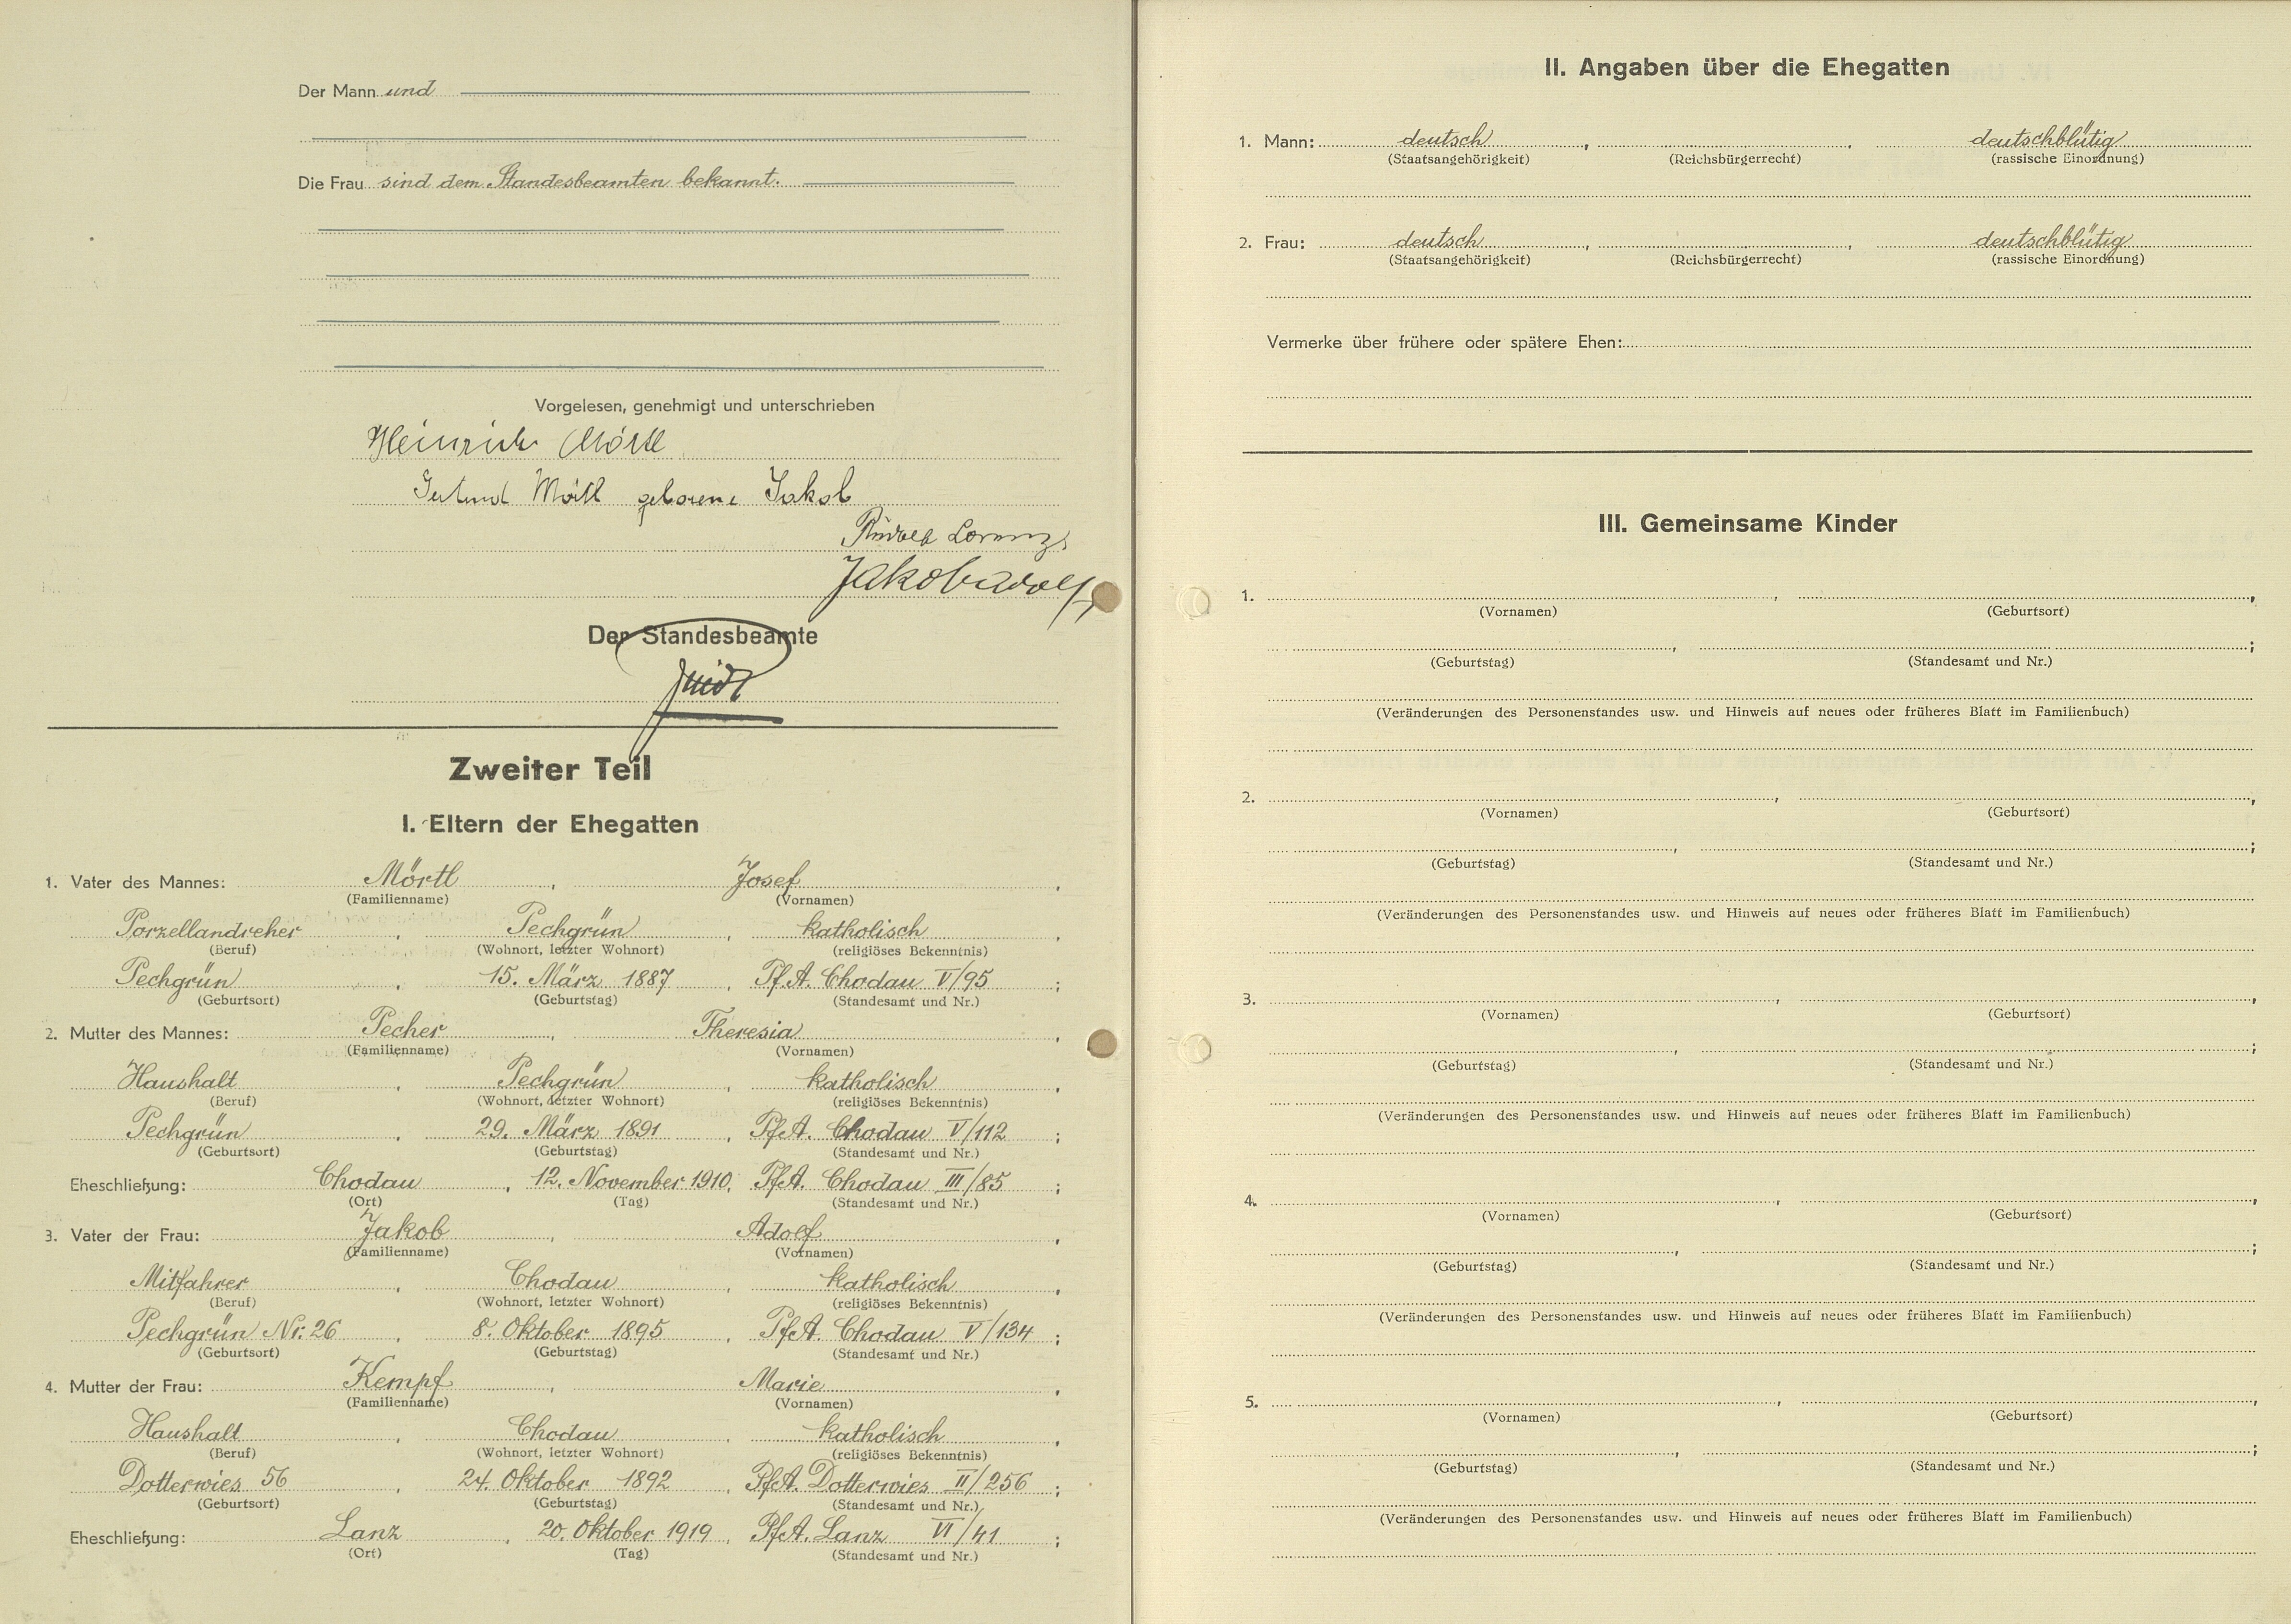 Der Mann und
Die Frau sind dem Standesbeamten bekannt.
Vorgelesen, genehmigt und unterschrieben
Heinrich Mörtl
Mörtl geborene Jakob
Rudolf Lorenz
Jakob Adolf
Der Standesbeamte
Zweiter Teil
I. Eltern der Ehegatten
1. Vater des Mannes: Mörtl, Josef,
(Familienname) (Vornamen)
Porzellandreher, Pechgrün, katholisch,
(Beruf) (Wohnort, letzter Wohnort) (religiöses Bekenntnis)
Pechgrün, 15. März 1887, Pf.A. Chodau V/95;
(Geburtsort) (Geburtstag) (Standesamt und Nr.)
2. Mutter des Mannes: Pecher, Theresia,
(Familienname) (Vornamen)
Haushalt, Pechgrün, katholisch,
(Beruf) (Wohnort, letzter Wohnort) (religiöses Bekenntnis)
Pechgrün, 29. März 1891, PfA. Chodau V/112;
(Geburtsort) (Geburtstag) (Standesamt und Nr.)
Eheschließung: Chodau, 12. November 1910, PfA. Chodau III/85;
(Ort) (Tag) (Standesamt und Nr.)
3. Vater der Frau: Jakob, Adolf,
(Familienname) (Vornamen)
Mitfahrer, Chodau, katholisch,
(Beruf) (Wohnort, letzter Wohnort) (religiöses Bekenntnis)
Pechgrün Nr. 26, 8. Oktober 1895, PfA. Chodau V/134;
(Geburtsort) (Geburtstag) (Standesamt und Nr.)
4. Mutter der Frau: Kempf, Marie,
(Familienname) (Vornamen)
Haushalt, Chodau, katholisch,
(Beruf) (Wohnort, letzter Wohnort) (religiöses Bekenntnis)
Dotterwies 56, 24. Oktober 1892, PfA. Dotterwies II/256;
(Geburtsort) (Geburtstag) (Standesamt und Nr.)
Eheschließung: Lanz, 20. Oktober 1919, PfA. Lanz VI/41;
(Ort) (Tag) (Standesamt und Nr.)
II. Angaben über die Ehegatten
1. Mann: deutsch, , deutschblütig
(Staatsangehörigkeit) (Reichsbürgerrecht) (rassische Einordnung)
2. Frau: deutsch, , deutschblütig
(Staatsangehörigkeit) (Reichsbürgerrecht) (rassische Einordnung)
Vermerke über frühere oder spätere Ehen:
III. Gemeinsame Kinder
1. , ,
(Vornamen) (Geburtsort)
, ;
(Geburtstag) (Standesamt und Nr.)
(Veränderungen des Personenstandes usw. und Hinweis auf neues oder früheres Blatt im Familienbuch)
2. , ,
(Vornamen) (Geburtsort)
, ;
(Geburtstag) (Standesamt und Nr.)
(Veränderungen des Personenstandes usw. und Hinweis auf neues oder früheres Blatt im Familienbuch)
3. , ,
(Vornamen) (Geburtsort)
, ;
(Geburtstag) (Standesamt und Nr.)
(Veränderungen des Personenstandes usw. und Hinweis auf neues oder früheres Blatt im Familienbuch)
4. , ,
(Vornamen) (Geburtsort)
, ;
(Geburtstag) (Standesamt und Nr.)
(Veränderungen des Personenstandes usw. und Hinweis auf neues oder früheres Blatt im Familienbuch)
5. , ,
(Vornamen) (Geburtsort)
, ;
(Geburtstag) (Standesamt und Nr.)
(Veränderungen des Personenstandes usw. und Hinweis auf neues oder früheres Blatt im Familienbuch)